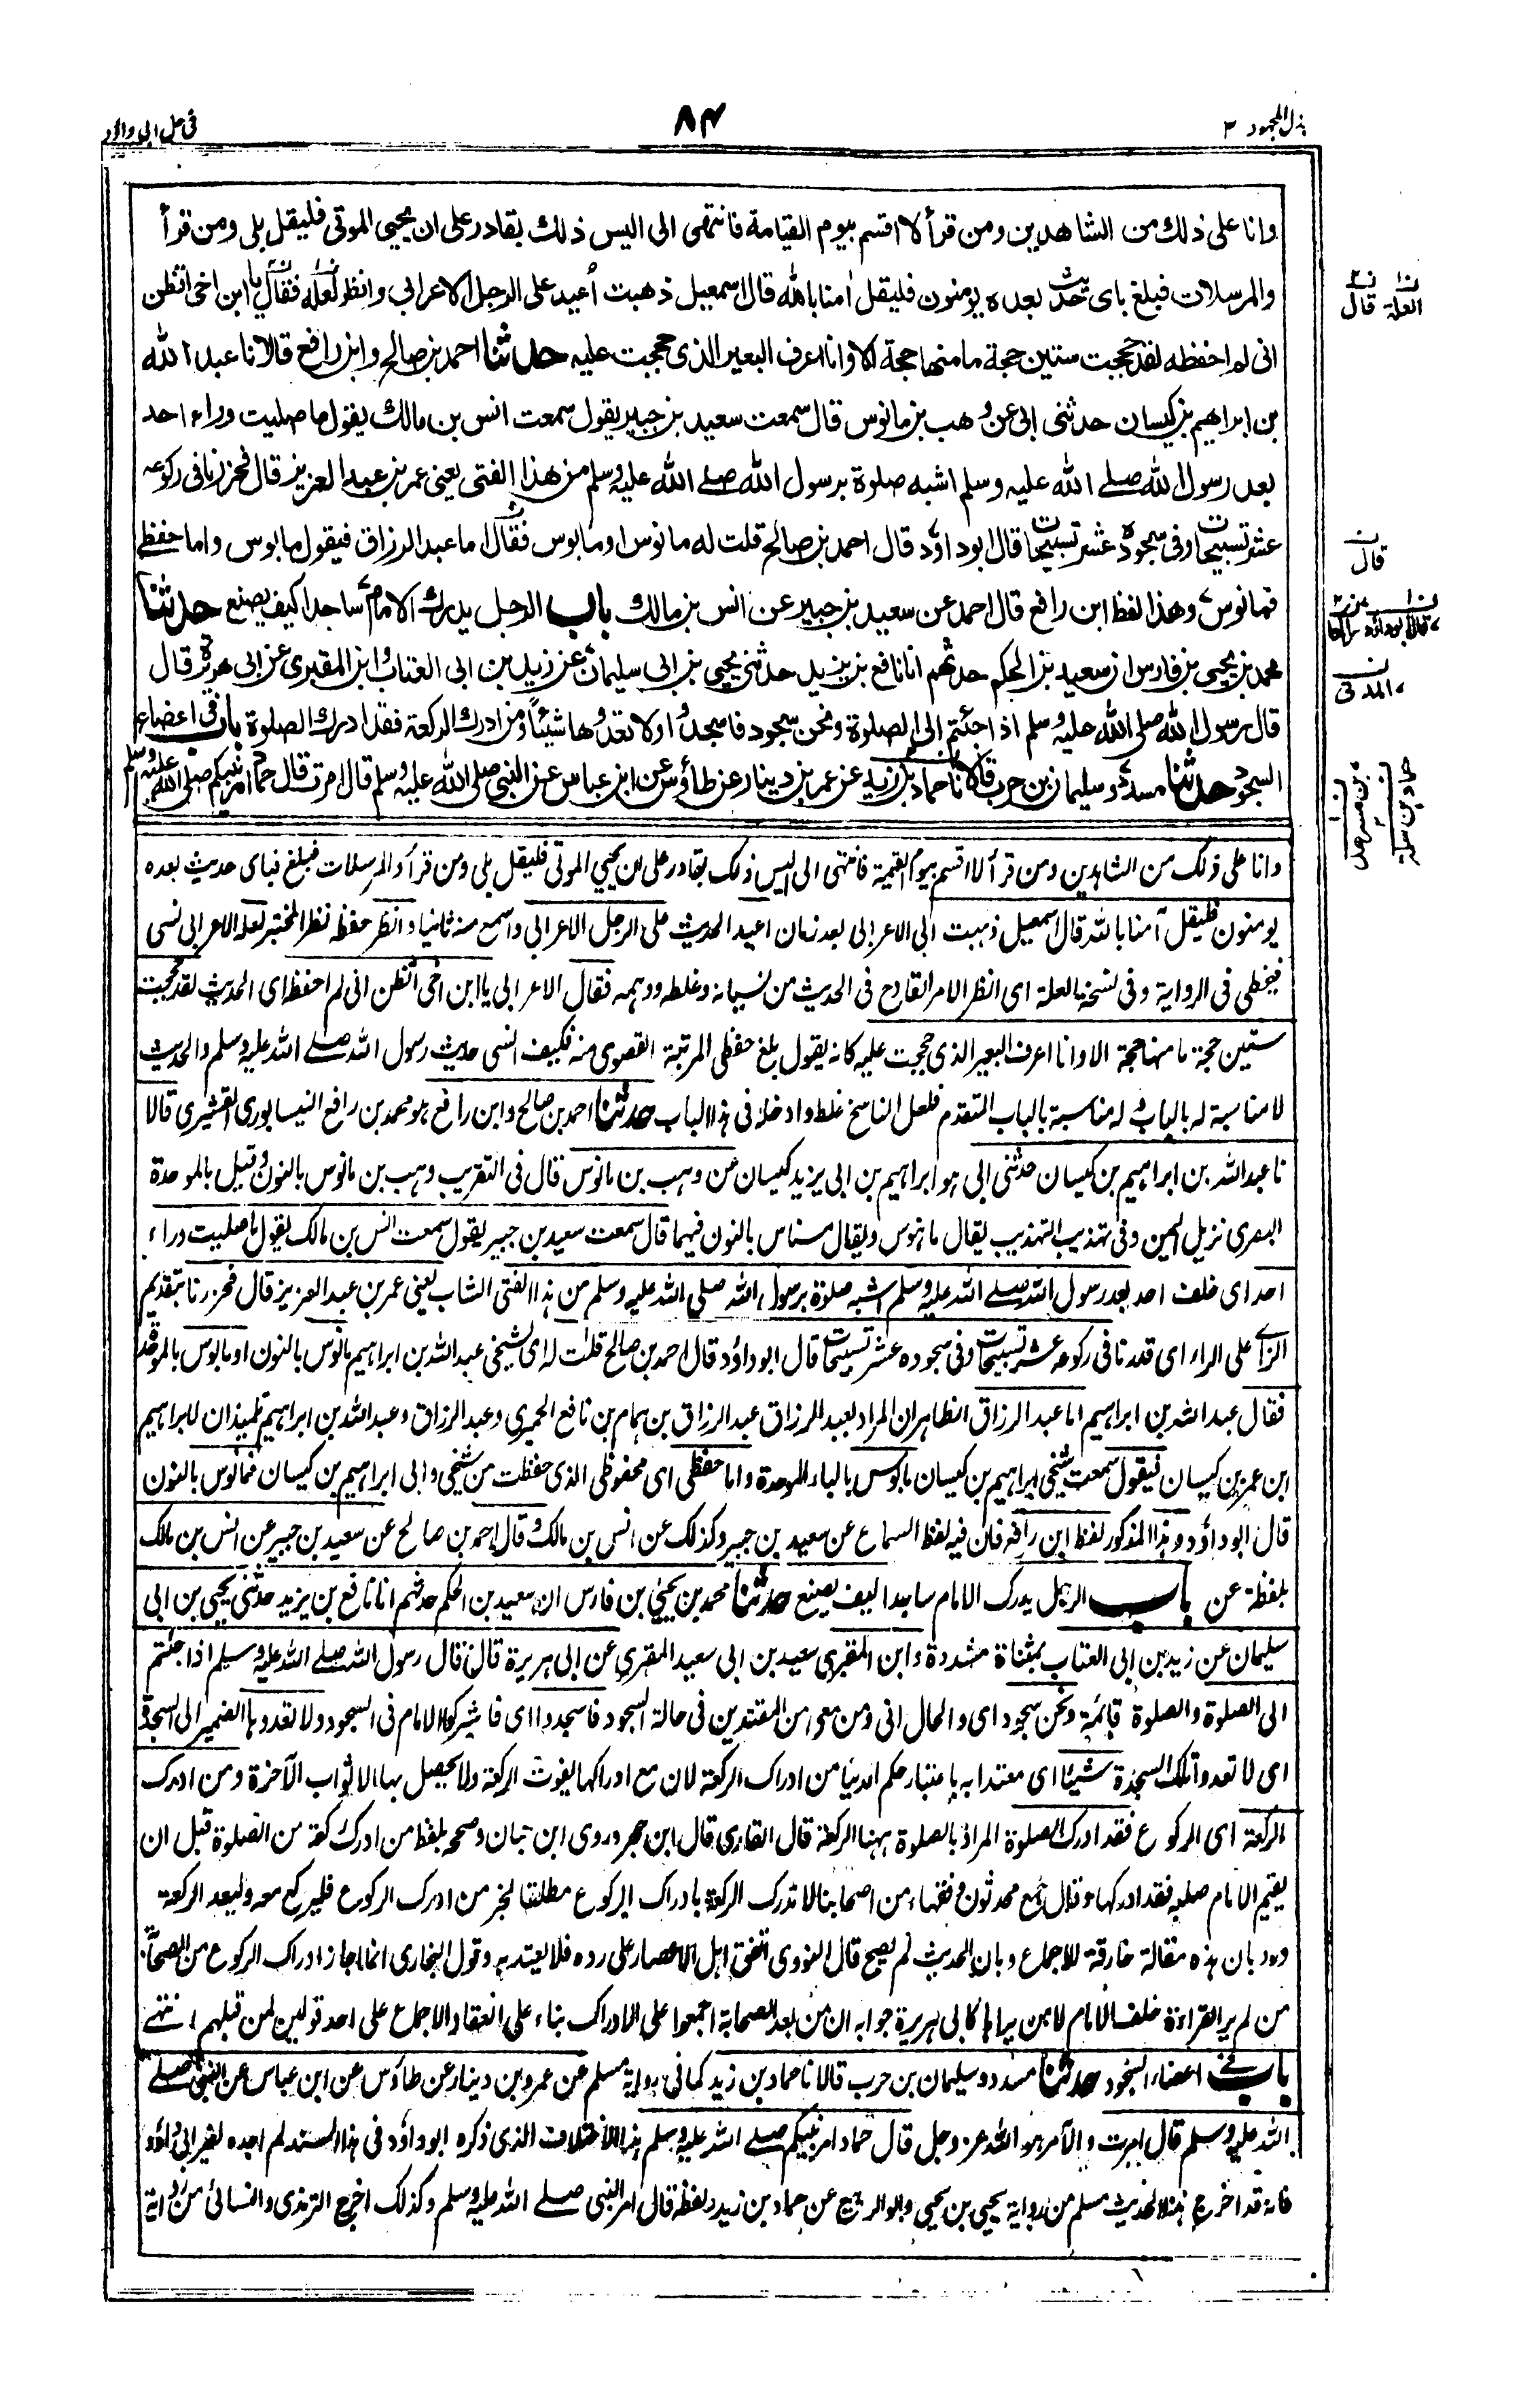 بذل المجهود ٢
٨٤
فى حل ابى داؤد
وانا على ذلك من الشاهدين ومن قرأ لا اقسم بيوم القيامة فانتهى الى اليس ذلك بقادر على ان يحيى الموتى فليقل بلى ومن قرأ
والمرسلات فبلغ باى حديث بعده يومنون فليقل أمنا بالله قال اسمعيل ذهبت أعيد على الرجل الاعرابي وانظر لعله فقال يا ابن اخى اتظن
انى لم احفظه لقد حججت ستين حجة مامنها حجة الا وانا اعرف البعير الذى حججت عليه حدثنا احمد بن صالح وابن رافع قالا نا عبد الله
بن ابراهيم بن كيسان حدثنى ابى عن وهب بن مانوس قال سمعت سعيد بن جبير يقول سمعت انس بن مالك يقول ما صليت وراء احد
بعد رسول الله صلے الله عليه وسلم اشبه صلوة برسول الله صلے الله عليه وسلم من هذا الفتى يعنى عمر بن عبد العزيز قال فحزرنا فى ركوعه
عشر تسبيحات وفى سجوده عشر تسبيحات قال ابو داود قال احمد بن صالح قلت له مانوس او مابوس فقال اما عبد الرزاق فيقول مابوس واما حفظى
فمانوس وهذا لفظ ابن رافع قال احمد عن سعيد بن جبير عن انس بن مالك باب الرجل يدرك الامام ساجدا كيف يصنع حدثنا
محمد بن يحيى بن فارس ان سعيد بن الحكم حدثهم انا نافع بن يزيد حدثنى يحيى بن ابى سليمان عن زيد بن ابى العتاب وابن المقبرى عن ابى هريرة قال
قال رسول الله صلى الله عليه وسلم اذا جئتم الى الصلوة ونحن سجود فاسجدوا ولا تعدوها شيئا ومن ادرك الركعة فقد ادرك الصلوة باب فى اعضاء
السجود حدثنا مسدد وسليمان بن حرب قالا نا حماد بن زيد عن عمر بن دينار عن طاؤس عن ابن عباس عن النبى صلى الله عليه وسلم قال امرت قال حماد امر نبيكم صلى الله عليه وسلم
العلة قال
قال
قال ابو داود
المدنى
حماد بن سلمة
بن مسرهد
وانا على ذلك من الشاهدين ومن قرأ لا اقسم بيوم القيمة فانتهى الى اليس ذلك بقادر على ان يحيي الموتى فليقل بلى ومن قرأ والمرسلات فبلغ فباى حديث بعده
يومنون فليقل آمنا بالله قال اسمعيل ذهبت الى الاعرابى بعد زمان اعيد الحديث على الرجل الاعرابى واسمع منه ثانيا وانظر حفظه نظر المختبر لعله الاعرابى نسى
فيخطى فى الرواية وفى نسخة العلة اى انظر الامر القادح فى الحديث من نسيانه وغلطه ووهمه فقال الاعرابى يا ابن اخى أتظن انى لم احفظ اى الحديث لقد حججت
ستين حجة ما منها حجة الا وانا اعرف البعير الذى حججت عليه كانه يقول بلغ حفظى المرتبة القصوى منه فكيف انسى حديث رسول الله صلے الله عليه وسلم والحديث
لا مناسبة له بالباب له مناسبة بالباب المتقدم فلعل الناسخ غلط وادخله فى هذا الباب حدثنا احمد بن صالح وابن رافع هو محمد بن رافع النيسابورى القشيرى قالا
نا عبد الله بن ابراهيم بن كيسان حدثنى ابى هو ابراهيم بن ابى يزيد كيسان عن وهب بن مانوس قال فى التقريب وهب بن مانوس بالنون وقيل بالموحدة
البصرى نزيل اليمن وفى تهذيب التهذيب يقال ماهنوس ويقال ميناس بالنون فيهما قال سمعت سعيد بن جبير يقول سمعت انس بن مالك يقول ما صليت وراء
احد اى خلف احد بعد رسول الله صلے الله عليه وسلم اشبه صلوة برسول الله صلى الله عليه وسلم من هذا الفتى الشاب يعنى عمر بن عبد العزيز قال فحزرنا بتقديم
الزاے على الراء اى قدرنا فى ركوعه عشر تسبيحات وفى سجوده عشر تسبيحات قال ابو داؤد قال احمد بن صالح قلت له اى لشيخى عبد الله بن ابراهيم مانوس بالنون او مابوس بالموحدة
فقال عبد الله بن ابراهيم اما عبد الرزاق الظاهر ان المراد بعبد الرزاق عبد الرزاق بن همام بن نافع الحميرى وعبد الرزاق وعبد الله بن ابراهيم تلميذان لابراهيم
ابن عمر بن كيسان فيقول سمعت شيخى ابراهيم بن كيسان مابوس بالباء الموحدة واما حفظى اى محفوظى الذى حفظت من شيخى وابى ابراهيم بن كيسان فمانوس بالنون
قال ابو داؤد وهذا المذكور لفظ ابن رافع فان فيه لفظ السماع عن سعيد بن جبير وكذلك عن انس بن مالك وقال احمد بن صالح عن سعيد بن جبير عن انس بن مالك
بلفظة عن باب الرجل يدرك الامام ساجدا كيف يصنع حدثنا محمد بن يحيى بن فارس ان سعيد بن الحكم حدثهم انا نافع بن يزيد حدثنى يحيى بن ابى
سليمان عن زيد بن ابى العتاب بمثناة مشددة وابن المقبرى سعيد بن ابى سعيد المقبرى عن ابى هريرة قال قال رسول الله صلے الله عليه وسلم اذا جئتم
الى الصلوة والصلوة قائمة ونحن سجود اى والحال انى ومن معى من المقتدين فى حالة السجود فاسجدوا اى فاشركوا الامام فى السجود ولا تعدوها الضمير الى السجدة
اى لا تعدوا تلك السجدة شيئا اى معتدا به باعتبار حكم الدنيا من ادراك الركعة لان مع ادراكها يفوت الركعة ولا يحصل بها الا ثواب الآخرة ومن ادرك
الركعة اى الركوع فقد ادرك الصلوة المراد بالصلوة ههنا الركعة قال القارى قال ابن حجر وروى ابن حبان وصححه بلفظ من ادرك ركعة من الصلوة قبل ان
يقيم الامام صلبه فقد ادركها وقال جمع محدثون وفقهاء من اصحابنا لا تدرك الركعة بادراك الركوع مطلقا لخبر من ادرك الركوع فليركع معه وليعد الركعة
ورد بان هذه مقالة خارقة للاجماع وبان الحديث لم يصح قال النووى اتفق اهل الاعصار على رده فلا يعتد به وقول البخارى انما اجاز ادراك الركوع من الصحابة
من لم ير القراءة خلف الامام لا من يراها كابى هريرة جوابه ان من بعد الصحابة اجمعوا على الادراك بناء على انعقاد الاجماع على احد قولين لمن قبلهم انتهے
باب فى اعضاء السجود حدثنا مسدد وسليمان بن حرب قالا نا حماد بن زيد كما فى رواية مسلم عن عمرو بن دينار عن طاؤس عن ابن عباس عن النبى صلے
الله عليه وسلم قال امرت والآمر هو الله عز وجل قال حماد امر نبيكم صلے الله عليه وسلم هذا الاختلاف الذى ذكره ابو داود فى هذا المسند لم اجده لغير ابى داؤد
فانه قد اخرج هذا الحديث مسلم من رواية يحيى بن يحيى وابو الربيع عن حماد بن زيد ولفظه قال امر النبى صلے الله عليه وسلم وكذلك اخرج الترمذى والنسائى من رواية